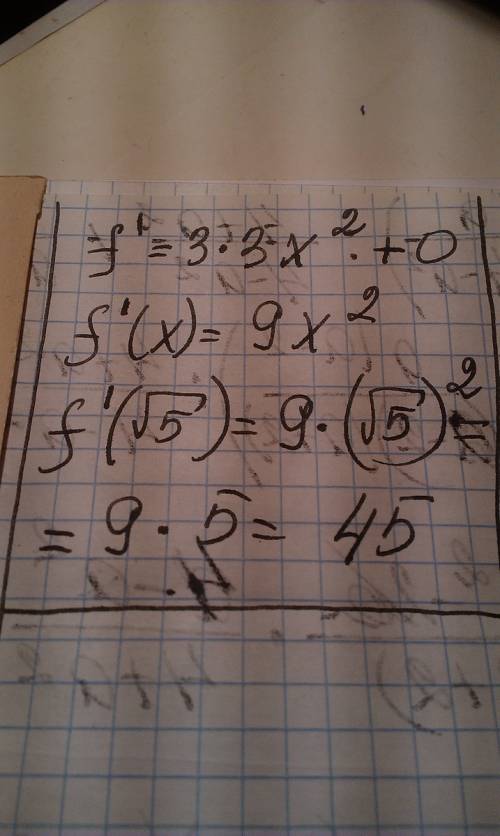 f' = 3·3x². + 0
f'(x) = 9x²
f'(√5) = 9·(√5)² =
= 9·5 = 45